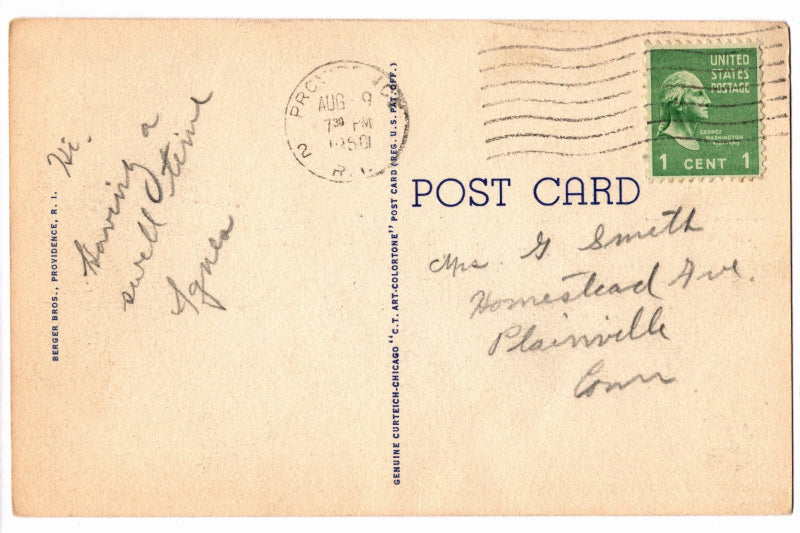 Hi.
Having a
swell time
Agnes
BERGER BROS., PROVIDENCE, R. I.
GENUINE CURTEICH-CHICAGO "C.T. ART-COLORTONE" POST CARD (REG. U.S. PAT. OFF.)
AUG 9
7 30 PM
R. I.
2
UNITED
STATES
POSTAGE
GEORGE
WASHINGTON
1 CENT 1
POST CARD
Mrs. G Smith
Homestead Ave.
Plainville
Conn